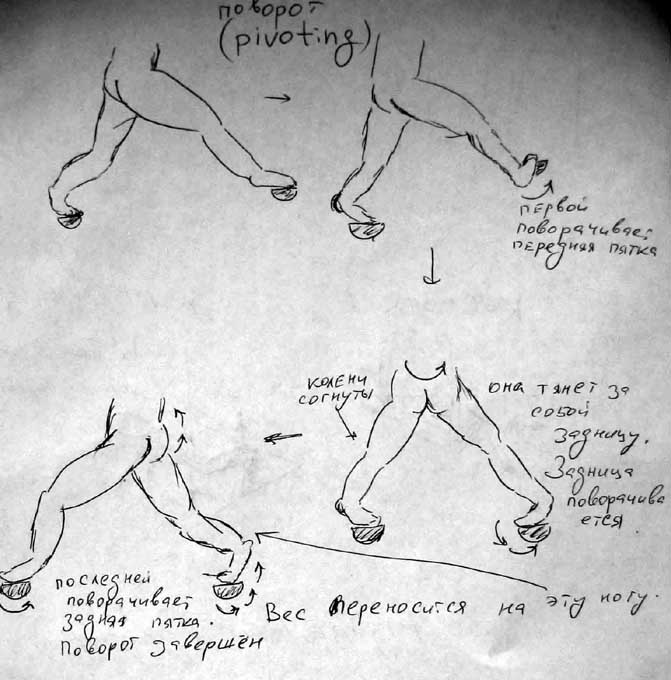 поворот
(pivoting)
первой
поворачивает
передняя пятка
колени
согнуты
она тянет за
собой
задницу.
Задница
поворачива
ется
последней
поворачивает
задняя пятка.
Поворот завершён
Вес переносится на эту ногу.